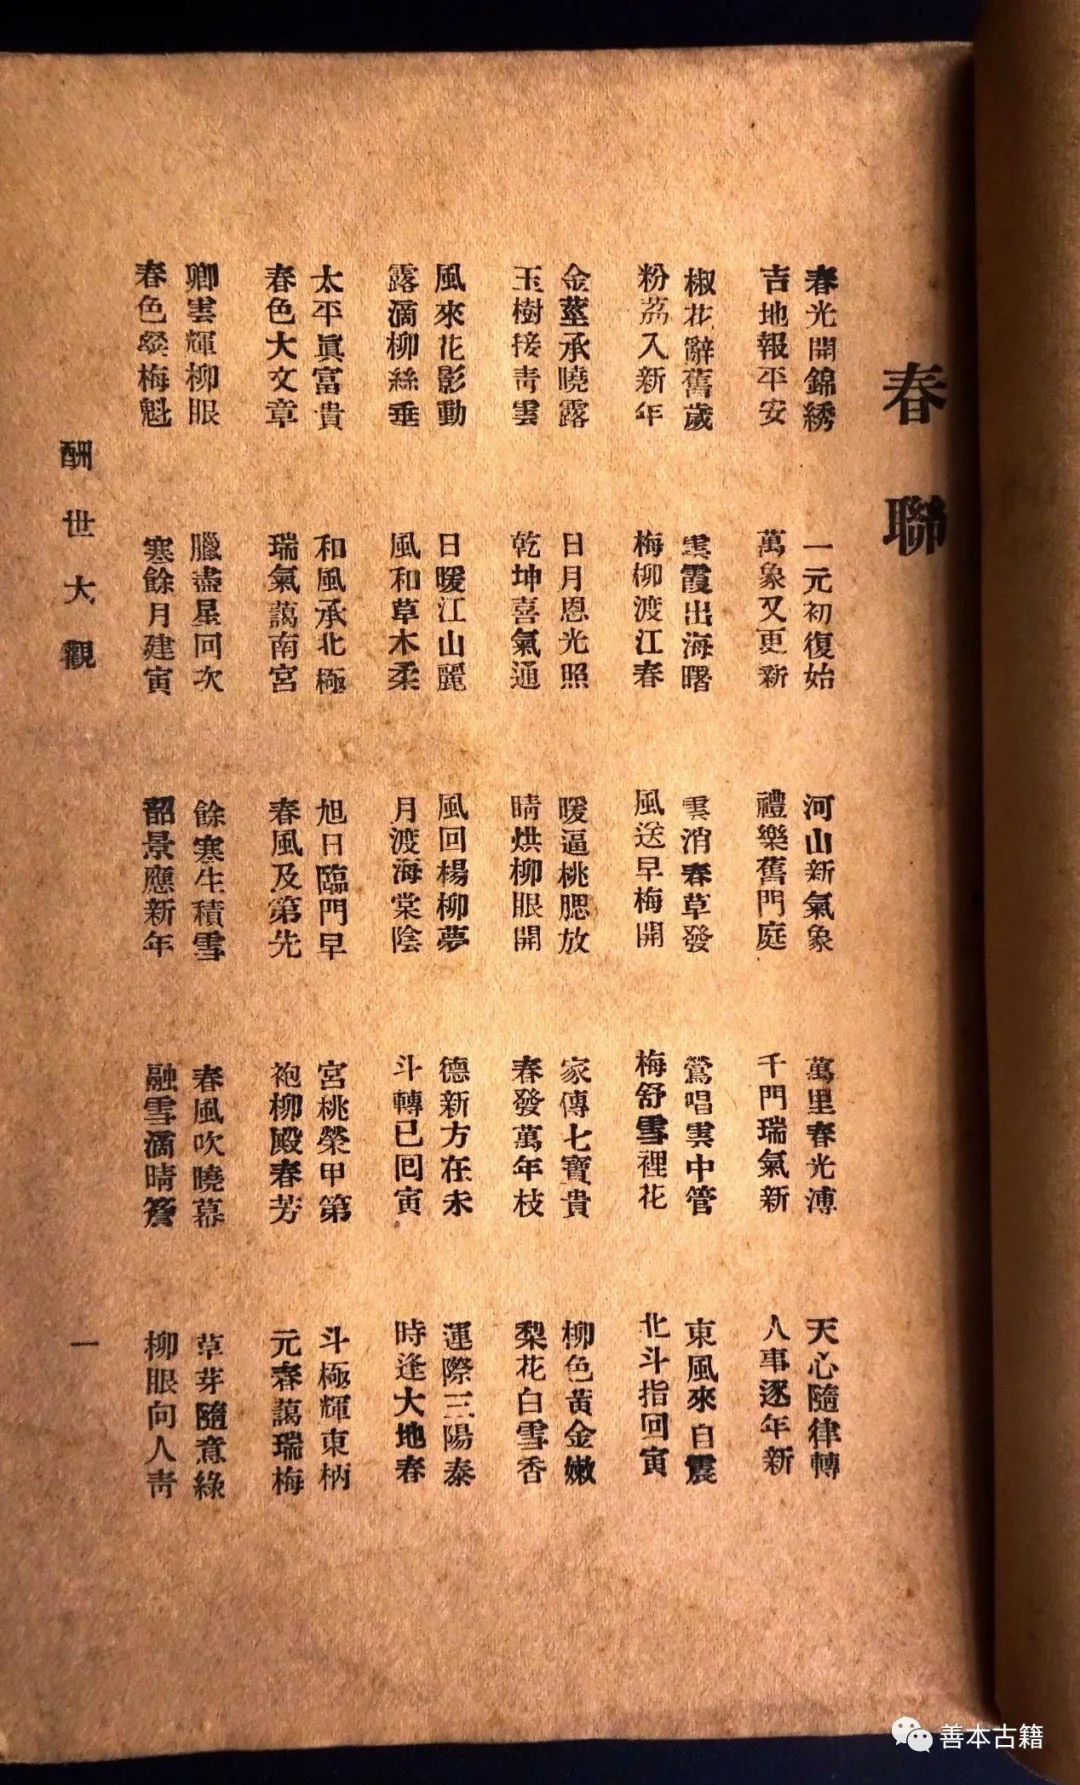 春聯
春光開錦綉 一元初復始 河山新氣象 萬里春光溥 天心隨律轉
吉地報平安 萬象又更新 禮樂舊門庭 千門瑞氣新 人事逐年新
椒花辭舊歲 雲霞出海曙 雲消春草發 鶯唱雲中管 東風來自震
粉荔入新年 梅柳渡江春 風送早梅開 梅舒雪裡花 北斗指回寅
金莖承曉露 日月恩光照 暖逼桃腮放 家傳七寶貴 柳色黃金嫩
玉樹接靑雲 乾坤喜氣通 晴烘柳眼開 春發萬年枝 梨花白雪香
風來花影動 日暖江山麗 風回楊柳夢 德新方在未 運際三陽泰
露滴柳絲垂 風和草木柔 月渡海棠陰 斗轉已回寅 時逢大地春
太平眞富貴 和風承北極 旭日臨門早 宮桃榮甲第 斗極輝東柄
春色大文章 瑞氣藹南宮 春風及第先 袍柳殿春芳 元春藹瑞梅
卿雲輝柳眼 臘盡星回次 餘寒生積雪 春風吹曉幕 草芽隨意綠
春色梅魁 寒餘月建寅 韶景應新年 融雪滴晴簷 柳眼向人靑
酬世大觀 一
善本古籍